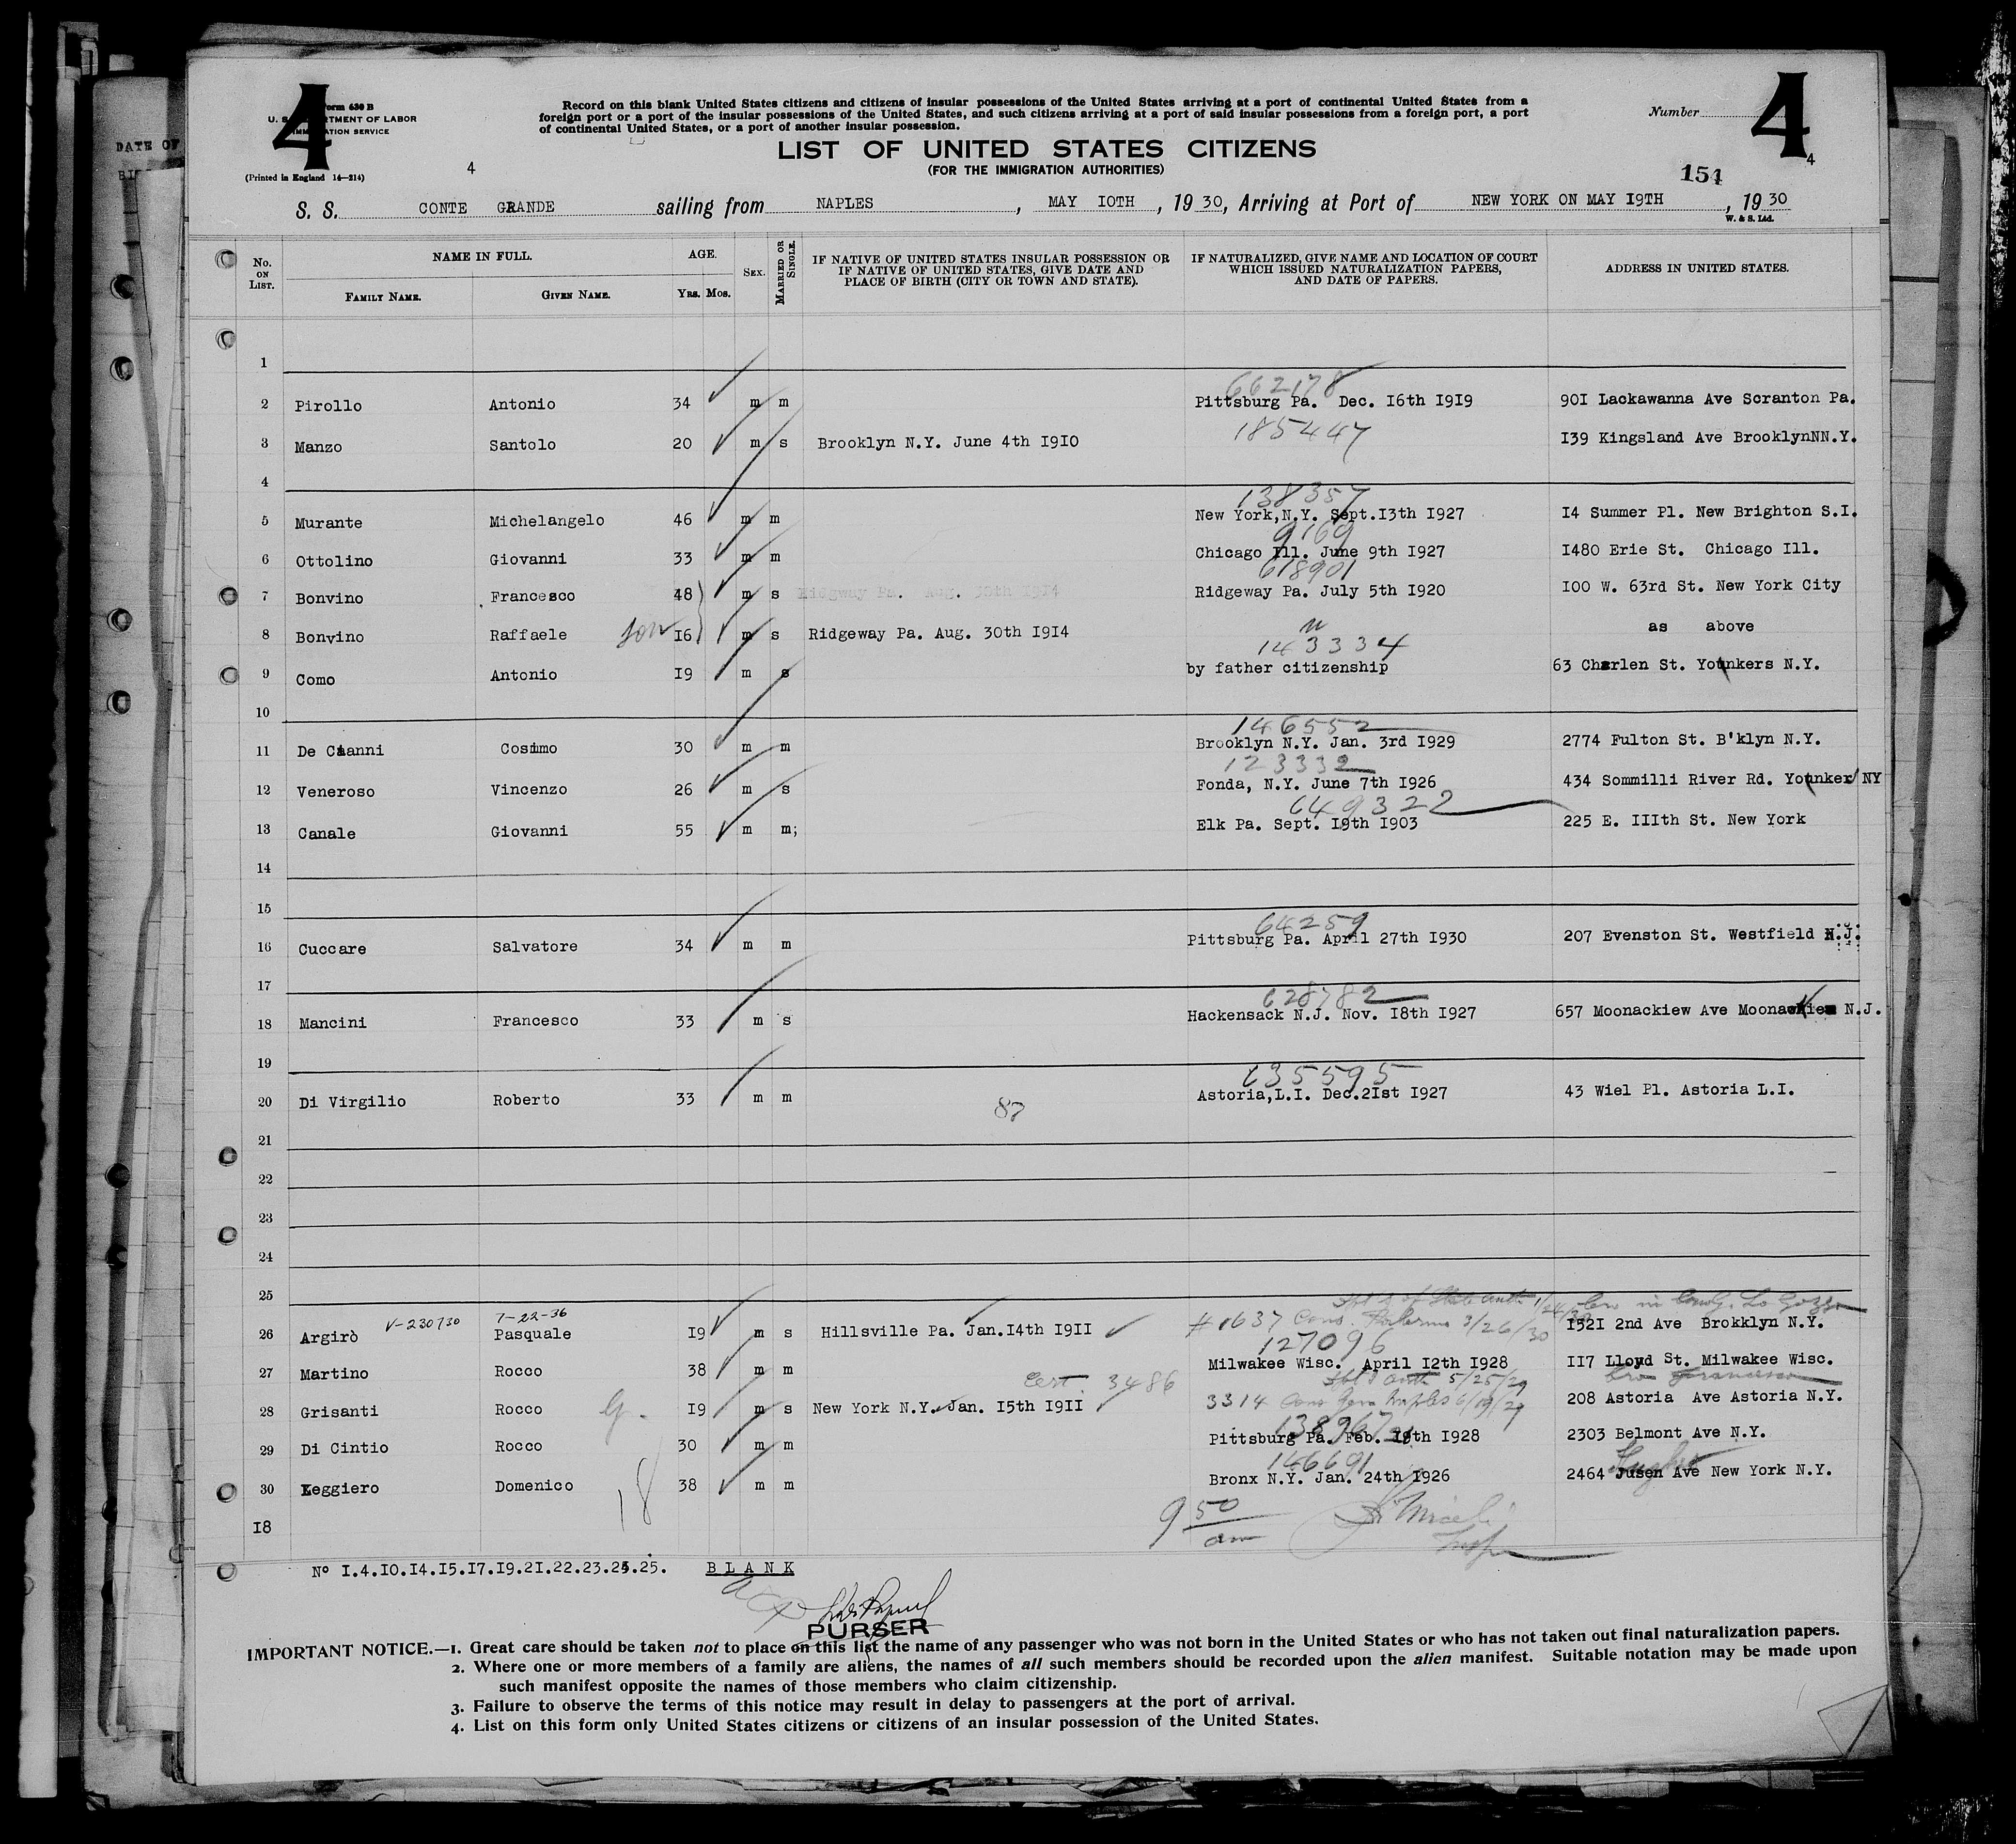 4
Form 630 B
U. S. DEPARTMENT OF LABOR
IMMIGRATION SERVICE
(Printed in England 14—214)
4
Record on this blank United States citizens and citizens of insular possessions of the United States arriving at a port of continental United States from a
foreign port or a port of the insular possessions of the United States, and such citizens arriving at a port of said insular possessions from a foreign port, a port
of continental United States, or a port of another insular possession.
LIST OF UNITED STATES CITIZENS
(FOR THE IMMIGRATION AUTHORITIES)
Number
4
4
151
S. S. CONTE GRANDE sailing from NAPLES, MAY IOTH, 19 30, Arriving at Port of NEW YORK ON MAY I9TH, 19 30
W. & S. Ltd.
No. ON LIST.
NAME IN FULL.
FAMILY NAME. GIVEN NAME.
AGE.
YRS. MOS.
SEX.
MARRIED OR SINGLE.
IF NATIVE OF UNITED STATES INSULAR POSSESSION OR
IF NATIVE OF UNITED STATES, GIVE DATE AND
PLACE OF BIRTH (CITY OR TOWN AND STATE).
IF NATURALIZED, GIVE NAME AND LOCATION OF COURT
WHICH ISSUED NATURALIZATION PAPERS,
AND DATE OF PAPERS.
ADDRESS IN UNITED STATES.
1
662178
2 Pirollo Antonio 34 m m Pittsburg Pa. Dec. I6th I9I9 90I Lackawanna Ave Scranton Pa.
185447
3 Manzo Santolo 20 m s Brooklyn N.Y. June 4th I9I0 I39 Kingsland Ave BrooklynNN.Y.
4
138357
5 Murante Michelangelo 46 m m New York,N.Y. Sept.I3th I927 I4 Summer Pl. New Brighton S.I.
9169
6 Ottolino Giovanni 33 m m Chicago Ill. June 9th I927 I480 Erie St. Chicago Ill.
618901
7 Bonvino Francesco 48 m s Ridgway Pa. Aug. 30th I9I4 Ridgeway Pa. July 5th I920 I00 W. 63rd St. New York City
8 Bonvino Raffaele son I6 m s Ridgeway Pa. Aug. 30th I9I4 as above
143334
9 Como Antonio I9 m s by father citizenship 63 Charlen St. Yonkers N.Y.
10
146552
11 De Cianni Cosimo 30 m m Brooklyn N.Y. Jan. 3rd I929 2774 Fulton St. B'klyn N.Y.
123332
12 Veneroso Vincenzo 26 m s Fonda, N.Y. June 7th I926 434 Sommilli River Rd. Yonker NY
649322
13 Canale Giovanni 55 m m; Elk Pa. Sept. I9th I903 225 E. IIIth St. New York
14
15
64259
16 Cuccare Salvatore 34 m m Pittsburg Pa. April 27th I930 207 Evenston St. Westfield N.J.
17
628782
18 Mancini Francesco 33 m s Hackensack N.J. Nov. I8th I927 657 Moonackiew Ave Moonackiew N.J.
19
635595
20 Di Virgilio Roberto 33 m m Astoria,L.I. Dec.2Ist I927 43 Wiel Pl. Astoria L.I.
87
21
22
23
24
25
V-230730 7-22-36
#1637 Cons. Palermo 3/26/30
26 Argirò Pasquale I9 m s Hillsville Pa. Jan.I4th I9II I52I 2nd Ave Brokklyn N.Y.
127096
27 Martino Rocco 38 m m Milwakee Wisc. April I2th I928 II7 Lloyd St. Milwakee Wisc.
Cert. 3486 5/25/29 bro Francesco
3314 Cons Gen Naples 6/19/29
28 Grisanti Rocco I9 m s New York N.Y. Jan. I5th I9II 208 Astoria Ave Astoria N.Y.
29 Di Cintio Rocco 30 m m Pittsburg Pa. Feb. I8th I928 2303 Belmont Ave N.Y.
146691 Hughes
30 Leggiero Domenico 38 m m Bronx N.Y. Jan. 24th I926 2464 Jusen Ave New York N.Y.
18
I8
9 50 am
Insp
Nº I.4.I0.I4.I5.I7.I9.2I.22.23.24.25. BLANK
PURSER
IMPORTANT NOTICE.—1. Great care should be taken not to place on this list the name of any passenger who was not born in the United States or who has not taken out final naturalization papers.
2. Where one or more members of a family are aliens, the names of all such members should be recorded upon the alien manifest. Suitable notation may be made upon
such manifest opposite the names of those members who claim citizenship.
3. Failure to observe the terms of this notice may result in delay to passengers at the port of arrival.
4. List on this form only United States citizens or citizens of an insular possession of the United States.